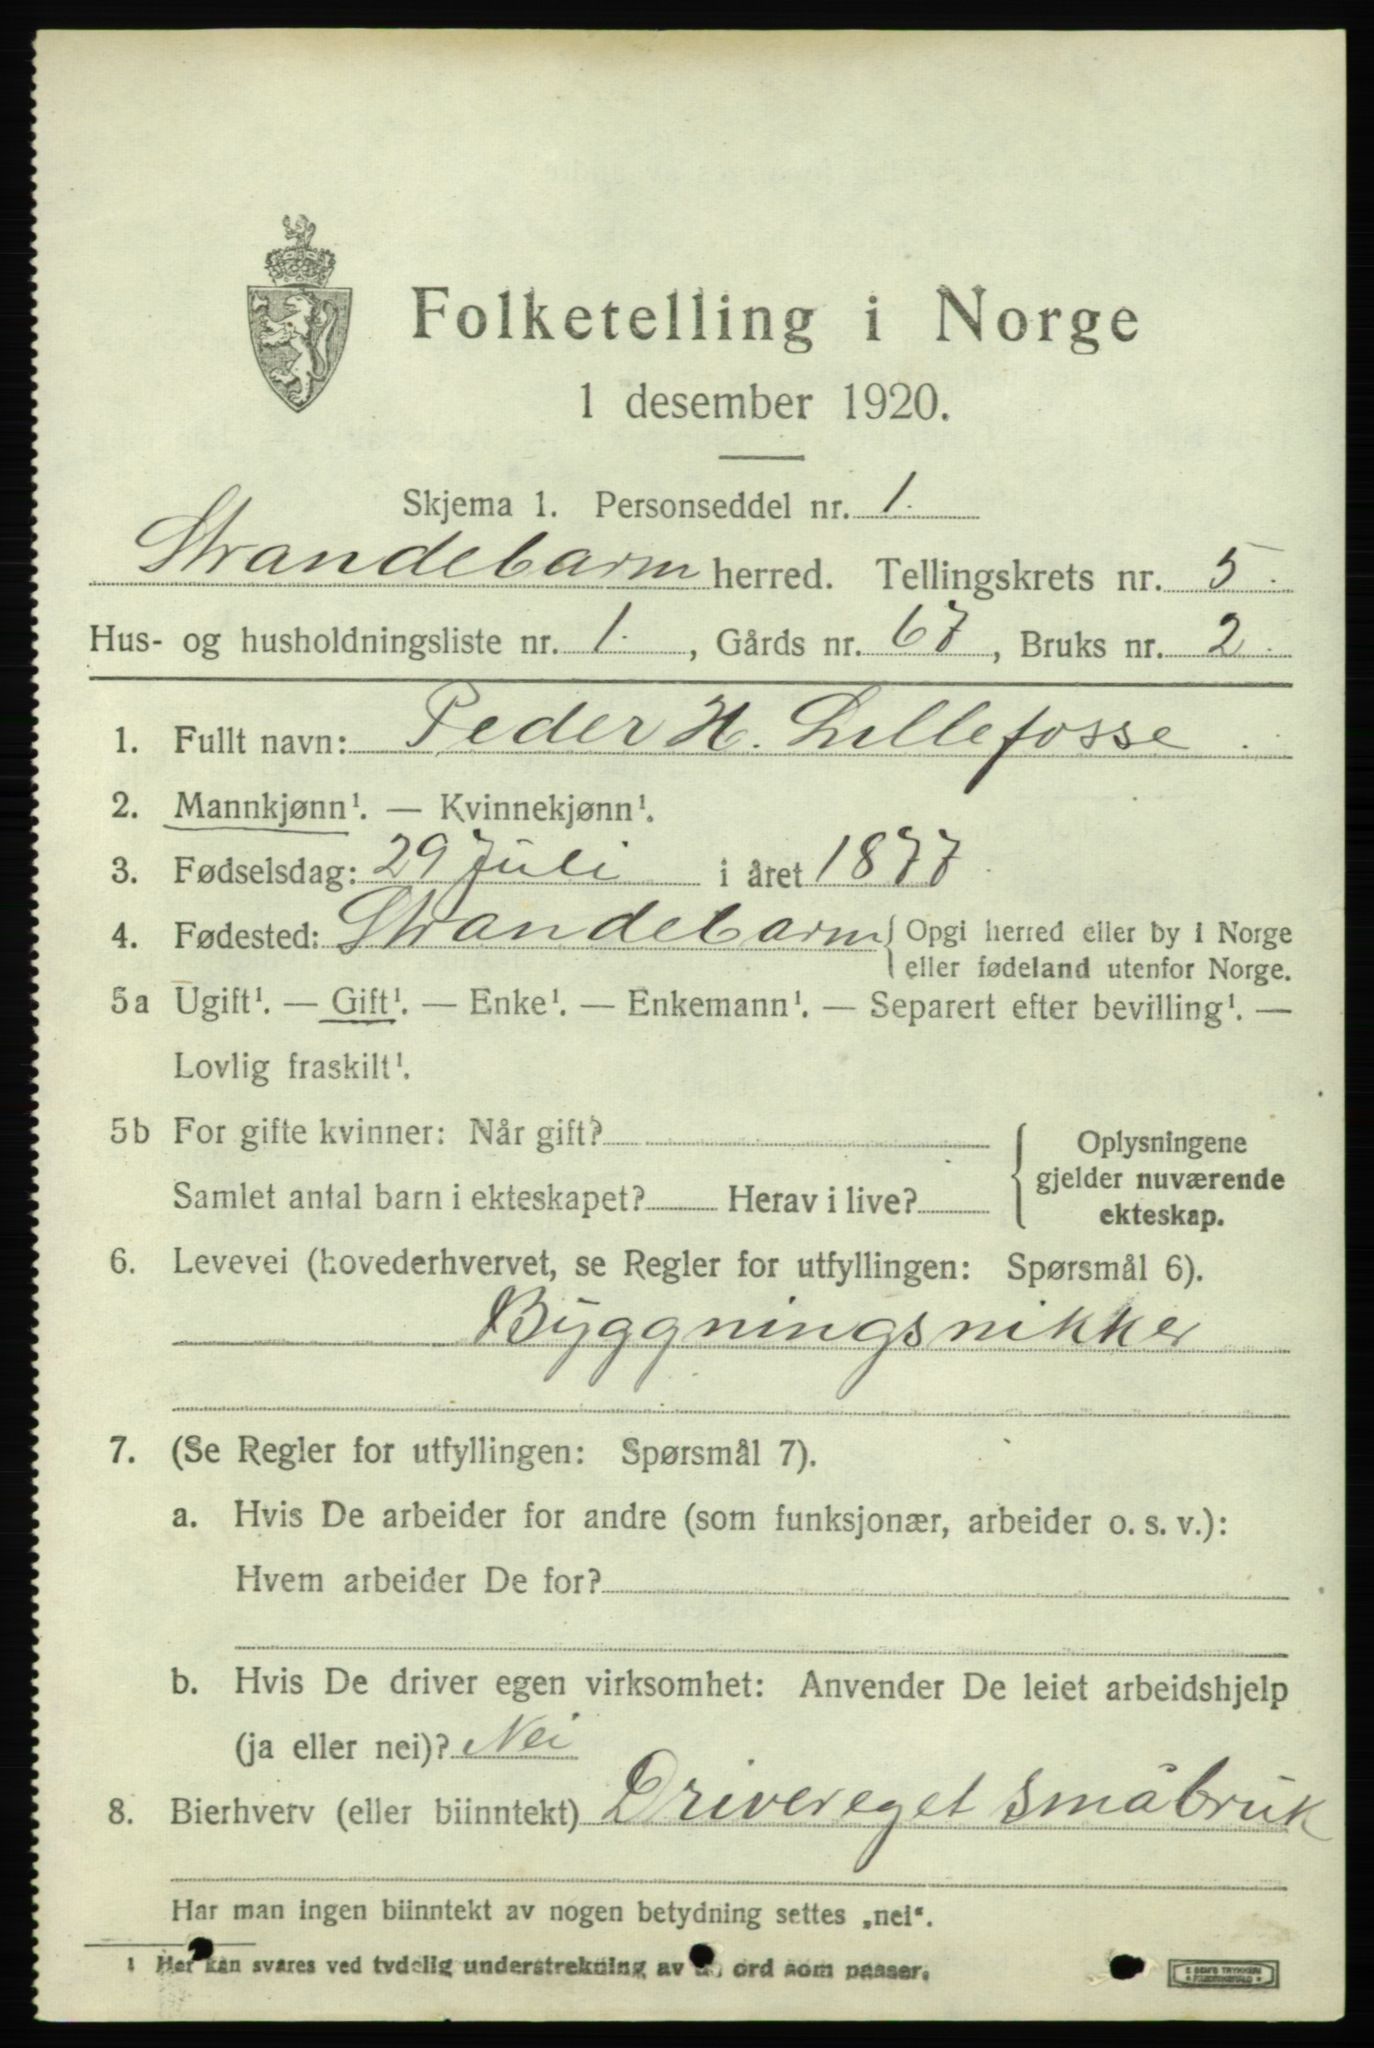 Folketelling i Norge
1 desember 1920.
Skjema 1. Personseddel nr. 1.
Strandebarm herred. Tellingskrets nr. 5.
Hus- og husholdningsliste nr. 1., Gårds nr. 67, Bruks nr. 2.
1. Fullt navn: Peder H. Lillefosse.
2. Mannkjønn¹. — Kvinnekjønn¹.
3. Fødselsdag: 29 Juli i året 1877.
4. Fødested: Strandebarm { Opgi herred eller by i Norge
eller fødeland utenfor Norge.
5a Ugift¹. — Gift¹. — Enke¹. — Enkemann¹. — Separert efter bevilling¹. —
Lovlig fraskilt¹.
5b For gifte kvinner: Når gift?
Samlet antal barn i ekteskapet? Herav i live?
Oplysningene
gjelder nuværende
ekteskap.
6. Levevei (hovederhvervet, se Regler for utfyllingen: Spørsmål 6).
Byggningsnikker
7. (Se Regler for utfyllingen: Spørsmål 7).
a. Hvis De arbeider for andre (som funksjonær, arbeider o. s. v.):
Hvem arbeider De for?
b. Hvis De driver egen virksomhet: Anvender De leiet arbeidshjelp
(ja eller nei)? Nei
8. Bierhverv (eller biinntekt) Driver eget småbruk
Har man ingen biinntekt av nogen betydning settes „nei“.
1 Her kan svares ved tydelig understrekning av ord som passer.